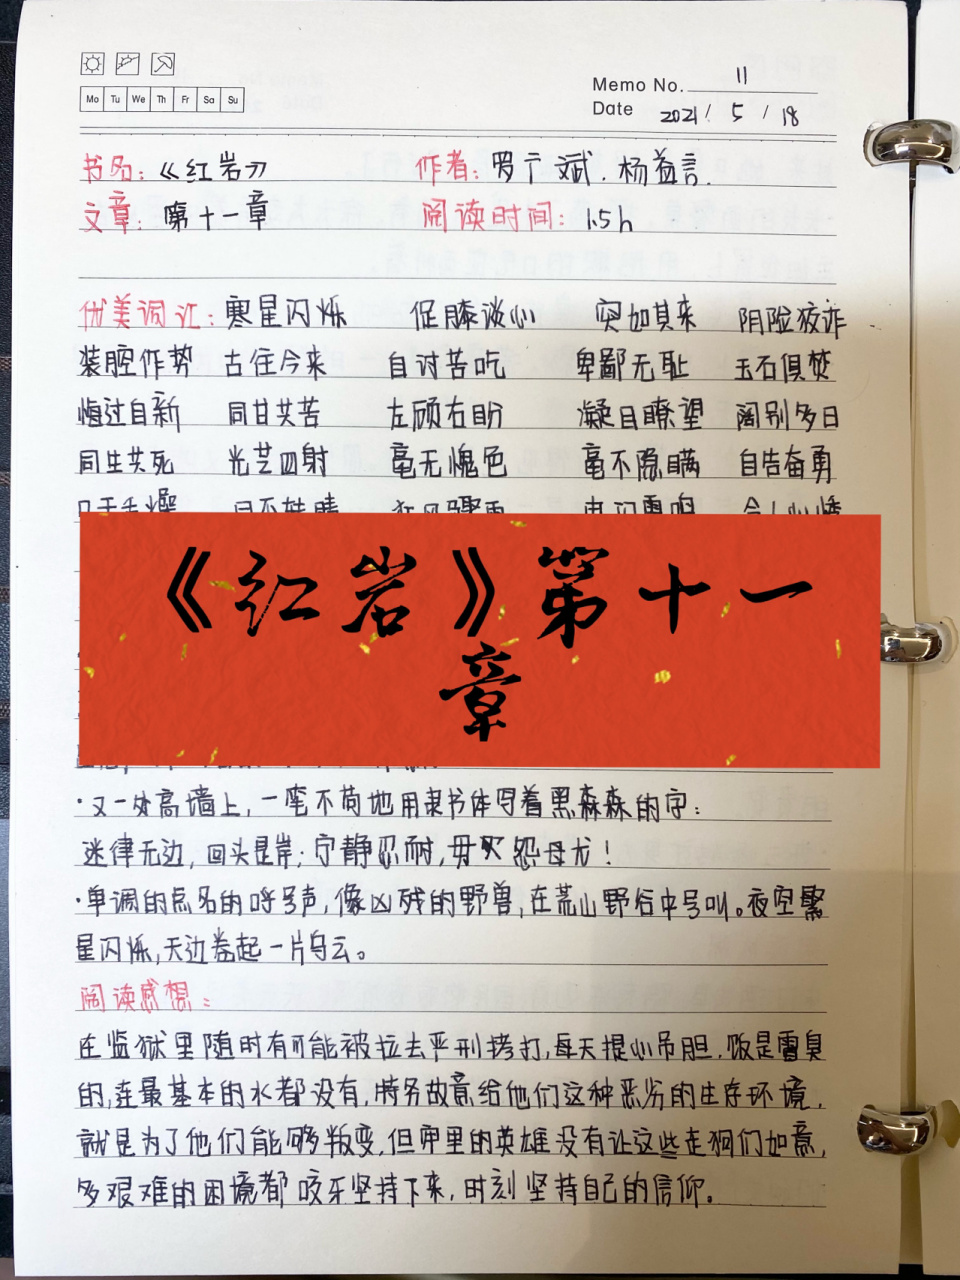 Mo Tu We Th Fr Sa Su
Memo No. 11
Date 2021 / 5 / 18
书名：《红岩》 作者：罗广斌.杨益言.
文章：第十一章 阅读时间：1.5h
优美词汇：寒星闪烁 促膝谈心 突如其来 阴险狡诈
装腔作势 古往今来 自讨苦吃 卑鄙无耻 玉石俱焚
悔过自新 同甘共苦 左顾右盼 凝目瞭望 阔别多日
同生共死 光芒四射 毫无愧色 毫不隐瞒 自告奋勇
口干舌燥 目不转睛 狂风骤雨 电闪雷鸣
《红岩》第十一
章
·又一处高墙上，一笔不苟地用隶书体写着黑森森的字：
迷律无边，回头是岸；宁静忍耐，毋灾怨毋尤！
·单调的点名的呼号声，像凶残的野兽，在荒山野谷中号叫。夜空繁
星闪烁，天边卷起一片乌云。
阅读感想：
在监狱里随时有可能被拉去严刑拷打，每天提心吊胆.饭是霉臭
的，连最基本的水都没有，特务故意给他们这种恶劣的生存环境，
就是为了他们能够叛变，但牢里的英雄没有让这些走狗们如意，
多艰难的困境都咬牙坚持下来，时刻坚持自己的信仰。